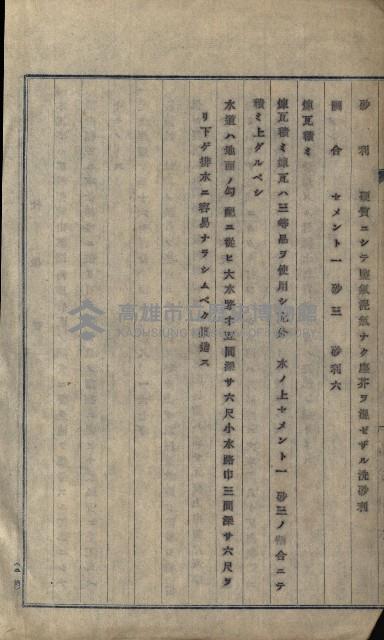 砂利 硬質ニシテ塩氣泥氣ナク塵芥ヲ混ゼザル洗砂利
調合 セメント一 砂三 砂利六
煉瓦積ミ
煉瓦積ミ煉瓦ハ三等品ヲ使用シ充分 水ノ上セメント一 砂三ノ調合ニテ
積ミ上グルベシ
水道ハ地面ノ勾配ニ從ヒ大水路巾五間深サ六尺小水路巾三間深サ六尺ヲ
リ下ゲ排水ニ容易ナラシムベク 造ス
高雄市立歷史博物館
KAOHSIUNG MUSEUM OF HISTORY